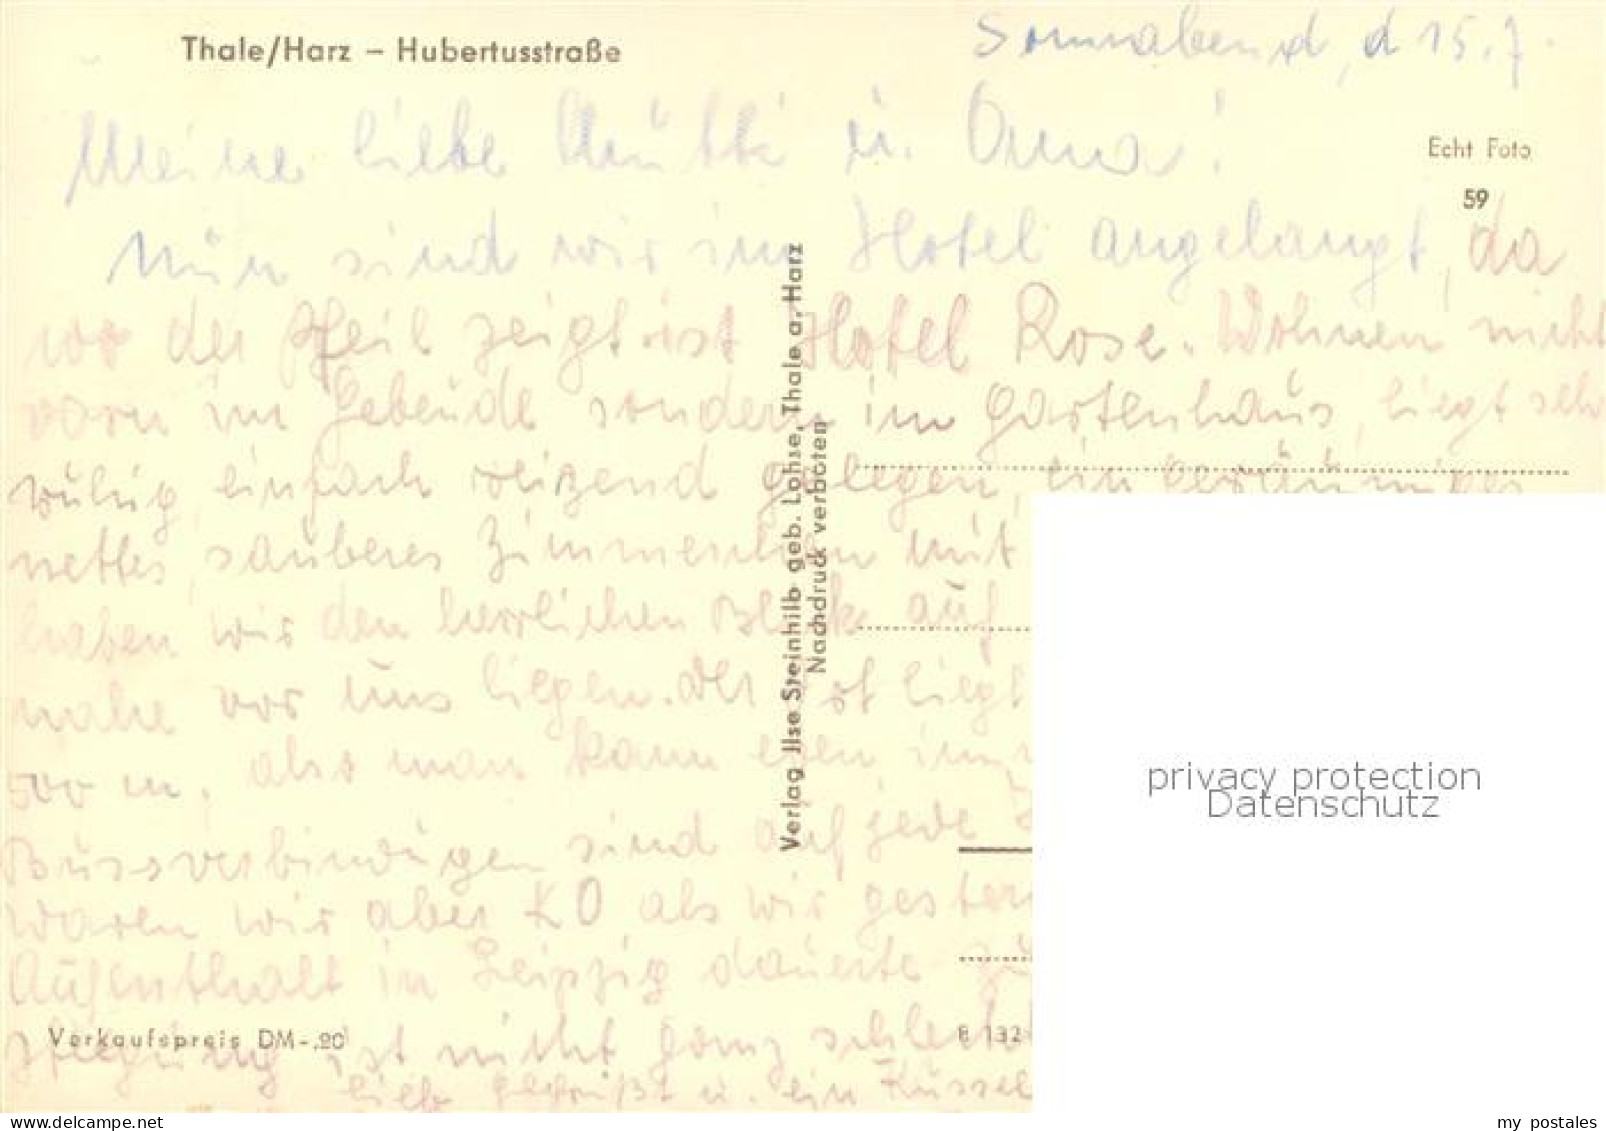 Thale/Harz – Hubertusstraße
Sonnabend, d 15.7.
Meine liebe Mutti u. Oma!
Echt Foto
59
Nun sind wir im Hotel angelangt, da
wo der Pfeil zeigt ist Hotel Rose. Wohnen nicht
vorn im Gebeude sondern im Gartenhaus, liegt sehr
ruhig, einfach reizend gelegen, ein geräumiges
nettes, sauberes Zimmerchen mit
haben wir den herrlichen Blick auf
nahe vor uns liegen. Der Ort liegt
500 m, also man kann eben
Bussverbindugen sind auf jede
waren wir aber KO als wir gestern
Aufenthalt in Leipzig dauerte
pflegung ist nicht ganz schlecht
lieb gegrüßt u. ein Küssel
Verlag Ilse Steinhilb geb. Lohse, Thale a. Harz
Nachdruck verboten
Verkaufspreis DM -.20
B 132
privacy protection
Datenschutz
my postales